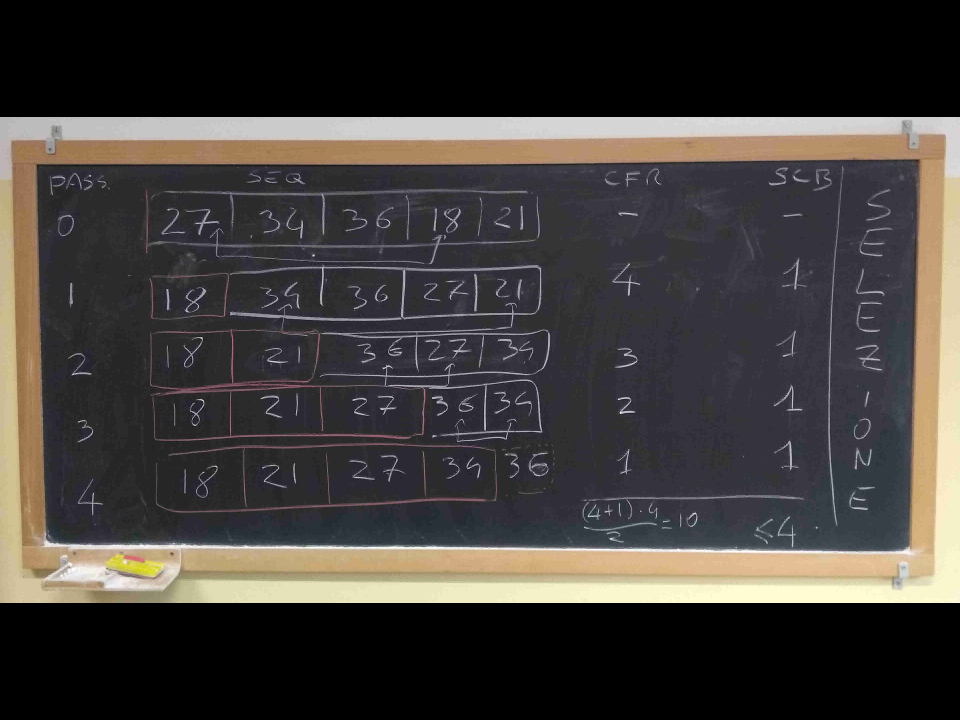 PASS. SEQ CFR SCB
0 27 34 36 18 21 - -
1 18 34 36 27 21 4 1
2 18 21 36 27 34 3 1
3 18 21 27 36 34 2 1
4 18 21 27 34 36 1 1
(4+1)·4/2 = 10 ≤4.
SELEZIONE